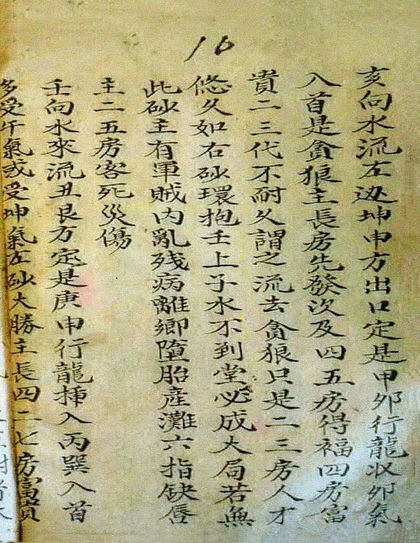 16
亥向水流左边坤申方出口定是甲卯行龙收卯氣
入首是貪狼主長房先發次及四五房得福四房富
貴二三代不耐久謂之流去貪狼只是二三房人才
悠久如右砂環抱壬上子水不到堂必成大局若無
此砂主有軍賊内亂残病離鄉墮胎産灘六指缺唇
主二五房客死災傷
壬向水來流丑艮方定是庚申行龍揷入丙巽入首
多受午氣或受坤氣左砂大勝主長四二七房富貴